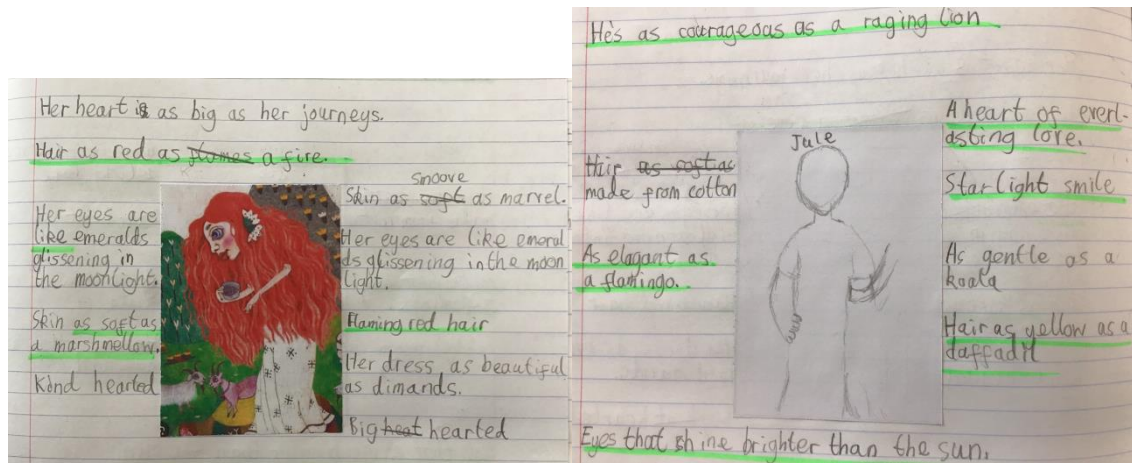 Her heart is as big as her journeys.
Hair as red as flames a fire.
Her eyes are
like emeralds
glissening in
the moonlight.
Skin as soft as
a marshmellow.
Kind hearted
smoove
Skin as soft as marvel.
Her eyes are like emeral
ds glissening in the moon
light.
Flaming red hair
Her dress as beautiful
as dimands.
Big heat hearted
He's as courageous as a raging lion
Hair as soft as
made from cotton
As elagant as
a flamingo.
Jule
A heart of everl-
asting love.
Star light smile
As gentle as a
koala
Hair as yellow as a
daffadil
Eyes that shine brighter than the sun.